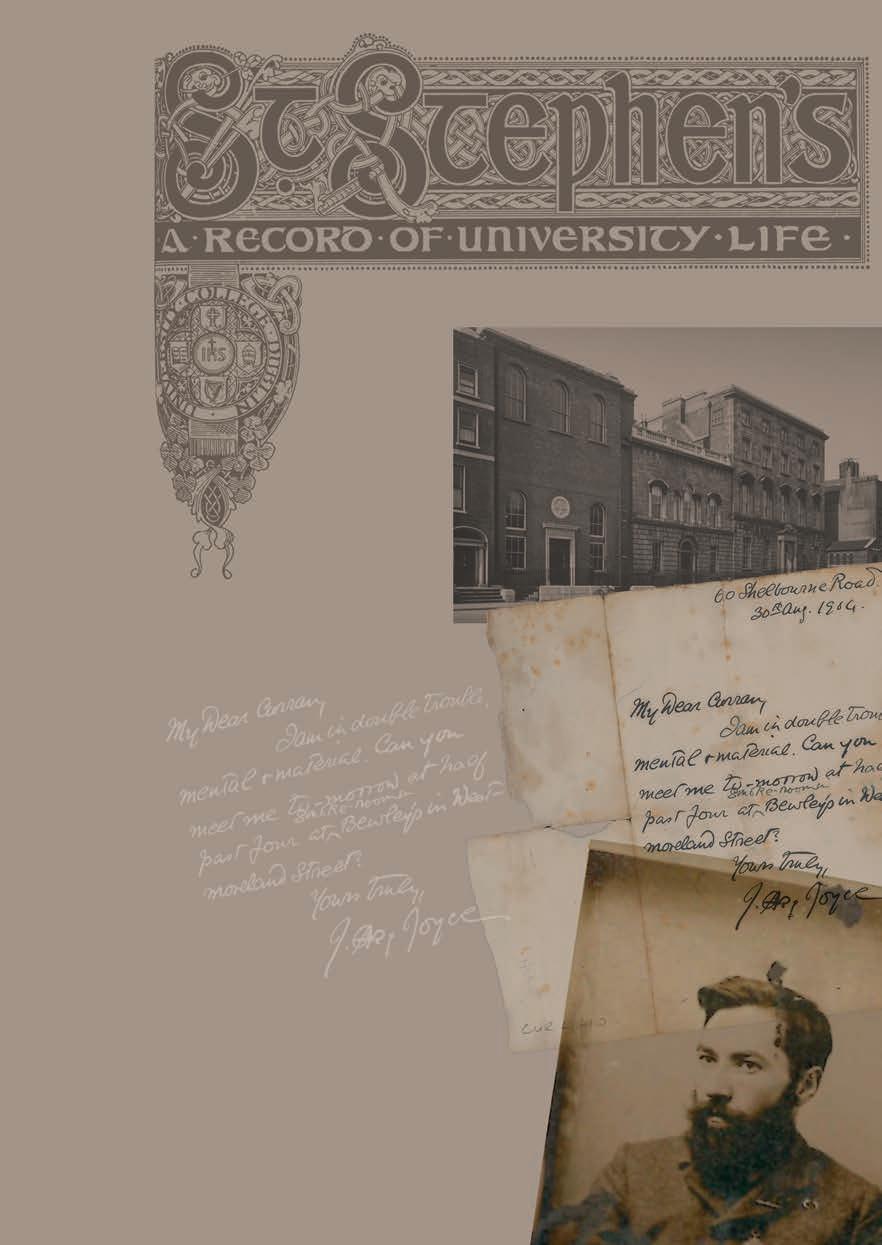 St Stephen's
A·RECORD·OF·UNIVERSITY·LIFE·
UNIVERSITY COLLEGE DUBLIN
IHS
60 Shelbourne Road.
30th Aug. 1904.
My Dear Curran,
I am in double trouble,
mental + material. Can you
meet me to-morrow at half
smoke-room
past four at Bewley's in West-
moreland Street?
Yours truly,
J. A. Joyce
My Dear Curran,
I am in double trou
mental + material. Can you
meet me to-morrow at ha
smoke-room
past four at Bewley's in We
moreland Street?
Yours truly,
Joyce
CUR L 40